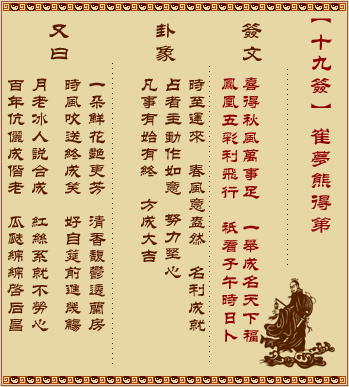 【十九簽】 崔夢熊得第
簽文
喜得秋風萬事足 一舉成名天下福
鳳凰五彩利飛行 祇看子午時日卜
卦象
時至運來 春風意盎然 名利成就
占者主動作如意 努力堅心
凡事有始有終 方成大吉
又曰
一朵鮮花艷更芳 清香馥鬱透蘭房
時風吹送終成笑 好自筵前進幾觴
月老冰人說合成 紅絲系就不勞心
百年伉儷成偕老 瓜瓞綿綿啓后昌